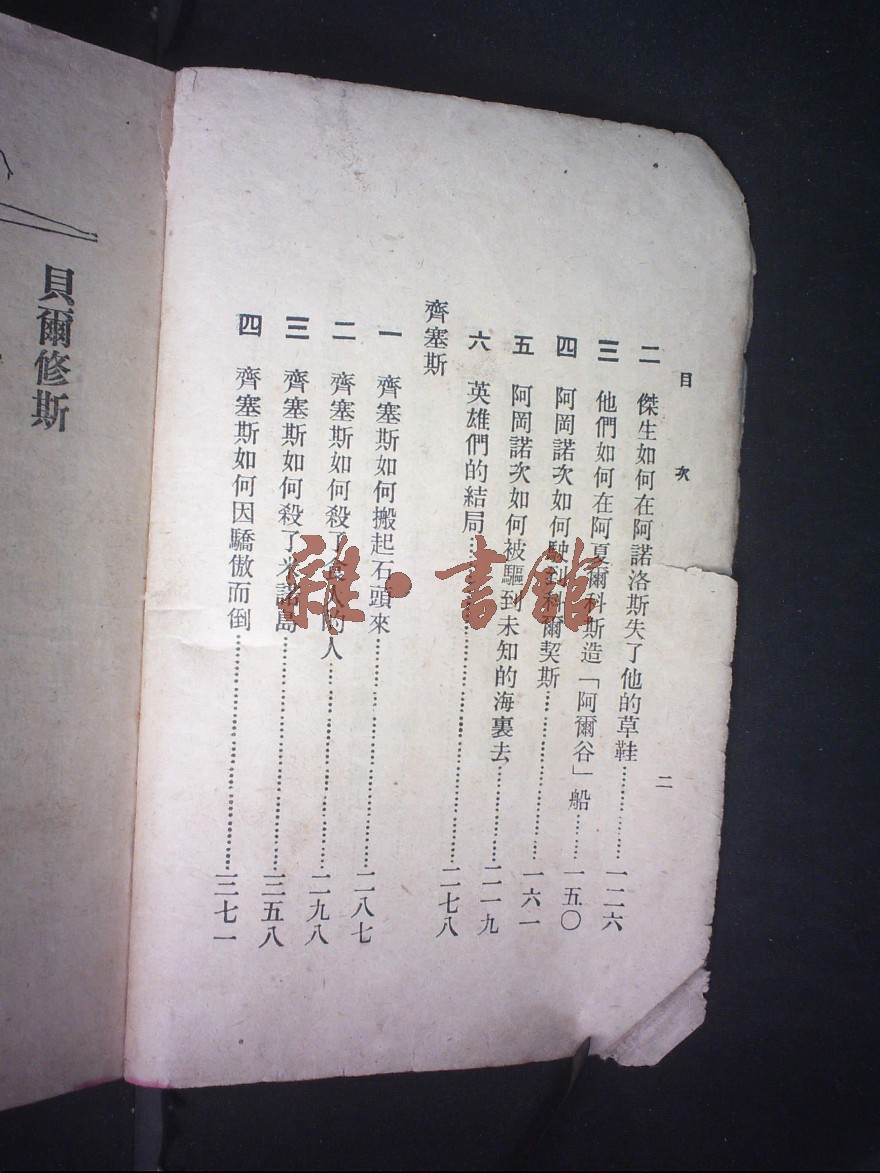 目次
二
二 傑生如何在阿諾洛斯失了他的草鞋……………一二六
三 他們如何在阿夏爾科斯造「阿爾谷」船……一五〇
四 阿岡諾次如何駛到科爾契斯……………一六一
五 阿岡諾次如何被驅到未知的海裏去……………二一九
六 英雄們的結局……………二七八
齊塞斯
一 齊塞斯如何搬起石頭來……………二八七
二 齊塞斯如何殺了食人的人……………二九八
三 齊塞斯如何殺了米諾島……………三五八
四 齊塞斯如何因驕傲而倒……………三七一
貝爾修斯
雜·書館